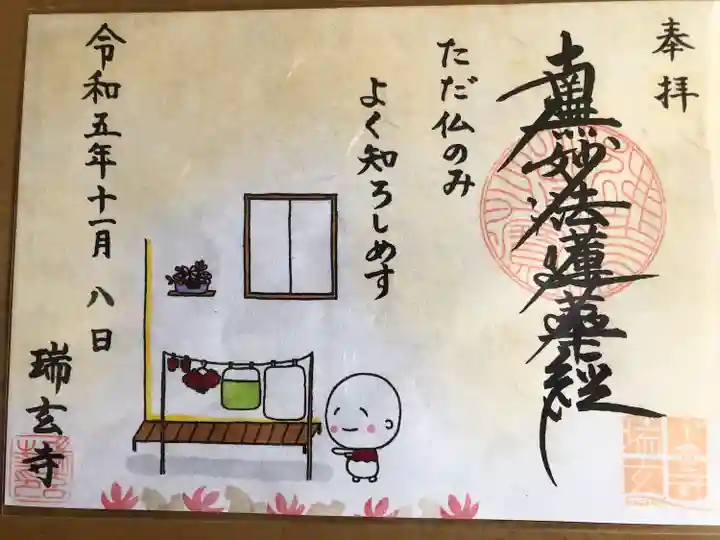 奉拝
南無妙法蓮華経
ただ仏のみ
よく知ろしめす
令和五年十一月八日
瑞玄寺